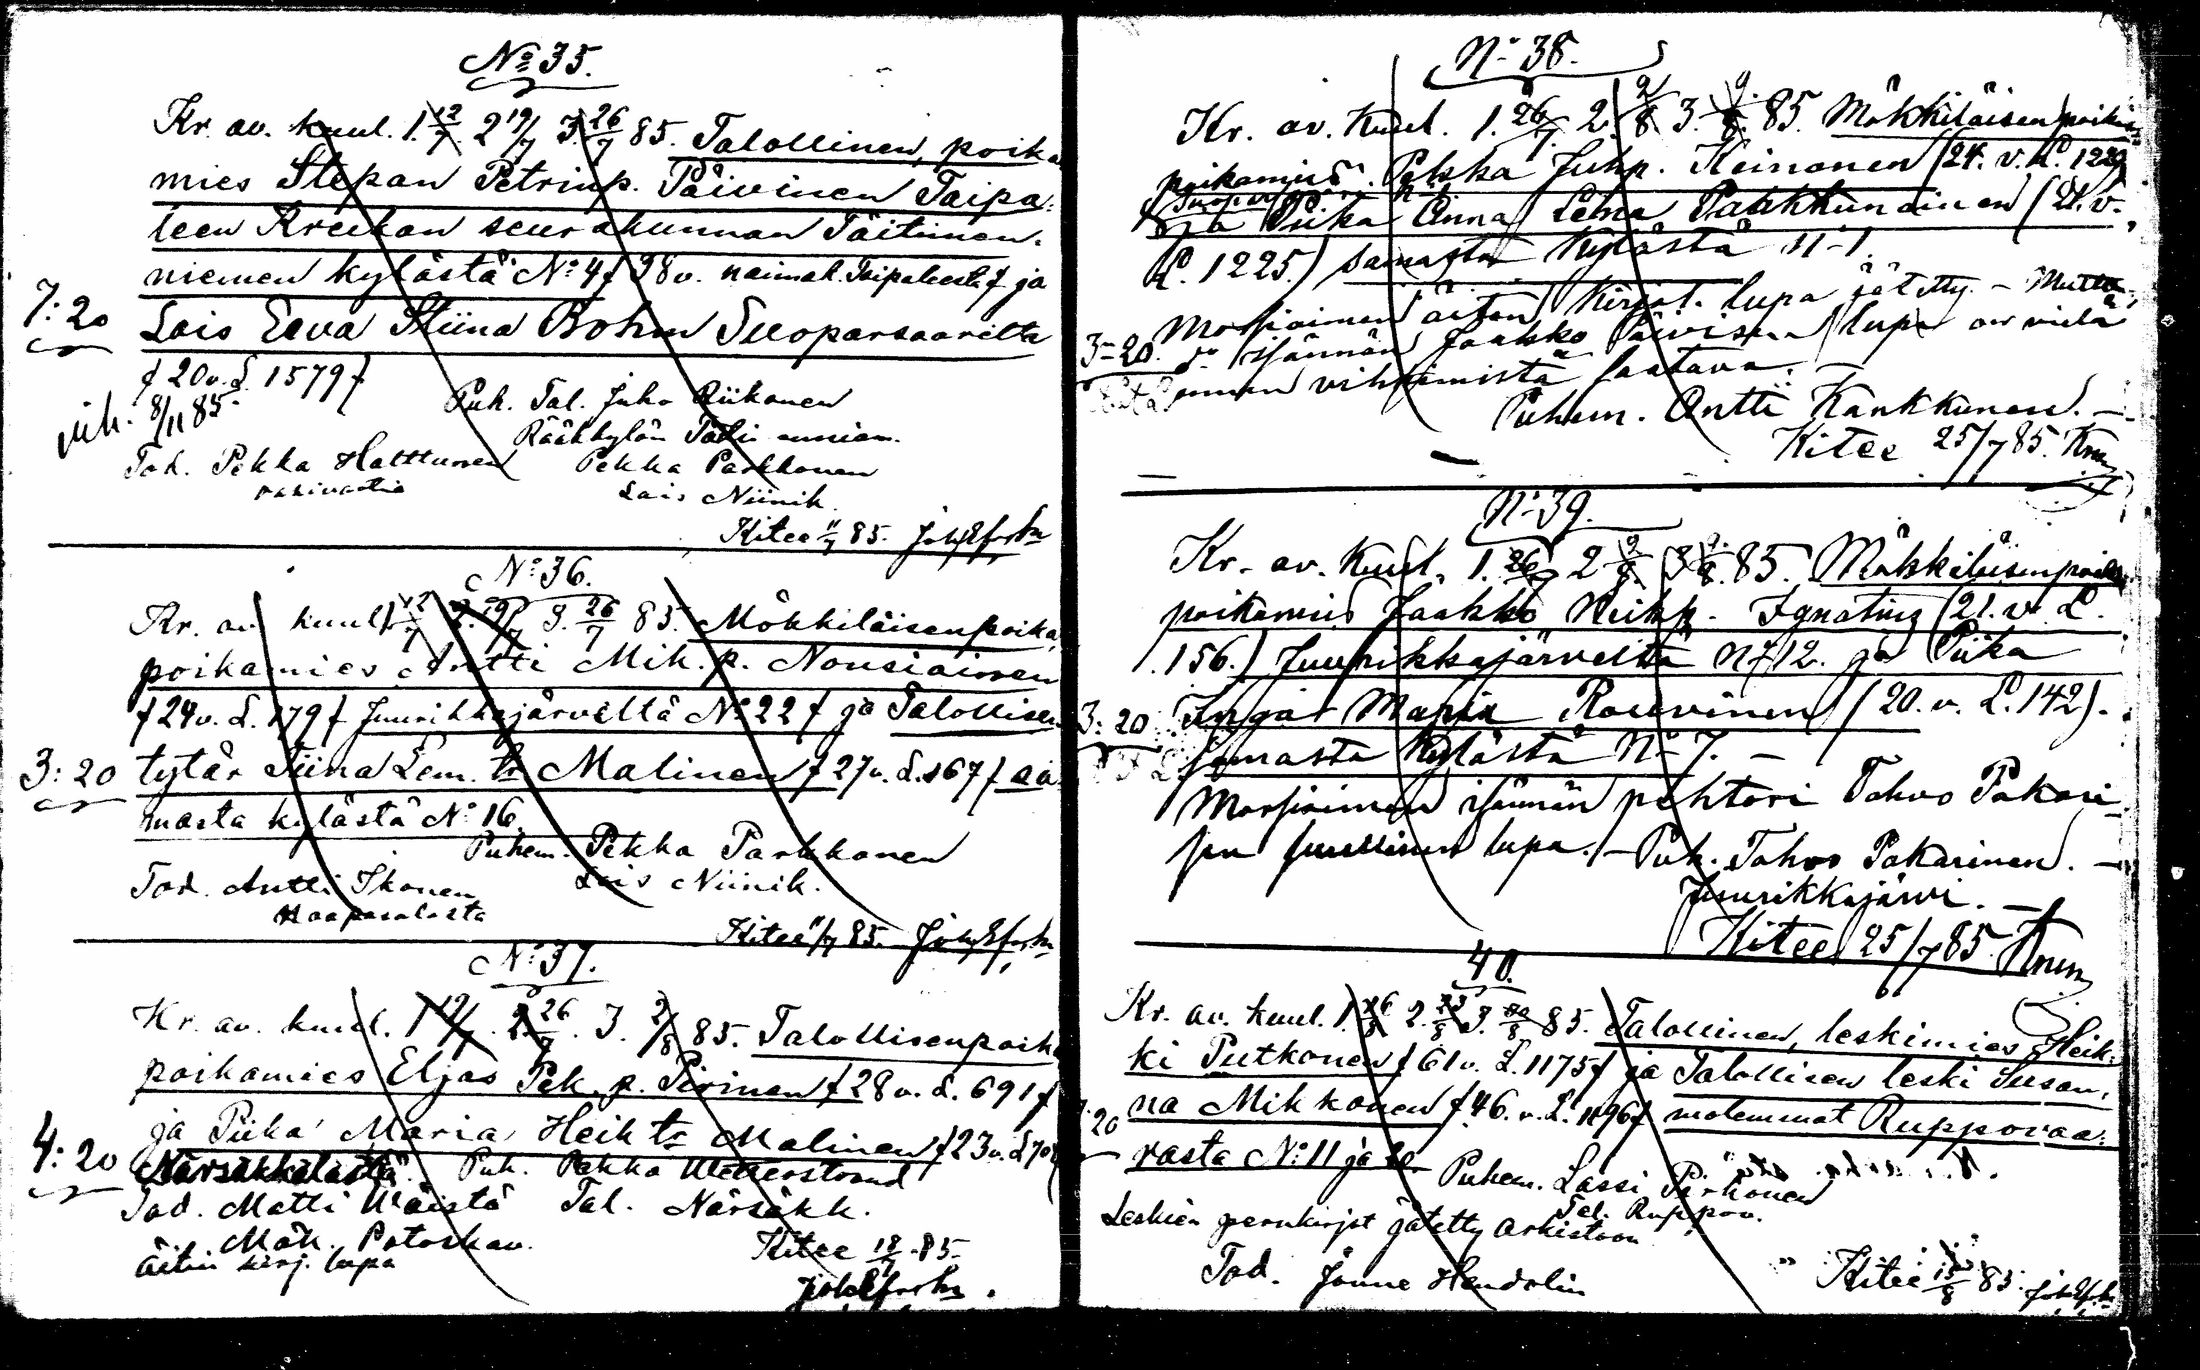 No 35.
Kr. av. kuul. 1. 12/7 2 19/7 3. 26/7 85. Talollinen, poika
mies Stepan Petrinp. Päivinen Taipa-
leen Kreikan seurakunnan Täitimen-
niemen kylästä No 4 f 38 v. naimal. Taipaleesta f ja
7:20
Lois Eeva Stiina Bohm Suoparsaarelta
f 20 v. L. 1579 f
vih. 8/11 85.
Puh. Tal. Juho Riikonen
Rääkkylän
Tod. Pekka Hatttunen
Pekka Parkkonen
Lois Niinik.
Kitee 11/7 85.
No 36.
Kr. av. kuul. 1 12/7 2. 19/7 3. 26/7 85. Mökkiläisenpoika,
poikamies Antti Mik. p. Nousiainen
f 24 v. L. 179 f Juurikkajärveltä No 22 f ja Talollisen
3:20
tytär Tiina Lem. tr Malinen f 27 v. L. 167 f sa-
masta kylästä No 16.
Puhem. Pekka Parkkonen
Lois Niinik.
Tod. Antti Ikonen
Haapasalosta
Kitee 11/7 85.
No 37.
Kr. av. kuul. 1 19/7. 2. 26/7. 3. 2/8 85. Talollisenpoika
poikamies Eljas Pek. p. Pirinen f 28 v. L. 691 f
ja Piika Maria Heik tr Malinen f 23 v. L
4:20
Närsäkkälästä. Puh. Pekka Wetterstrand
Tod. Matti Wäistö Tal. Närsäkk.
Mök. Potoskav.
Äitin kirj. lupa
Kitee 18/7 85.
No 38.
Kr. av. Kuul. 1. 26/7. 2. 2/8 3. 9/8 85. Mökkiläisenpoika
poikamies Pekka Juhp. Keinonen (24. v. L. 122
ja Piika Anna Leena Pakkkunainen (21. v.
L. 1225.) samasta Kylästä No 1.
Morsiaimen äitin Kirjal. lupa jätetty. – Mutta
3:20.
isännän Jaakko Päivisen lupa on vielä
ennen vihkimistä saatava. –
Puhem. Antti Kankkunen. –
Kitee 25/7 85.
No 39.
Kr. av. Kuul. 1. 26/7 2 2/8 3 9/8 85. Mökkiläisenpoika
poikamies Jaakko Heikp. Ignatius (21. v. L.
156.) Juurikkajärveltä No 12. ja Piika
3:20
Inga Maria Rouvinen (20. v. L. 142).
samasta Kylästä No 7. –
Morsiaimen isännän pehtori Tahvo Pakari-
sen suullinen lupa. – Puh. Tahvo Pakarinen. –
Juurikkajärvi. –
Kitee 25/7 85
40.
Kr. av. kuul. 1. 16/8 2. 23/8 3. 30/8 85. Talollinen, leskimies Heik-
ki Putkonen f 61 v. L. 1175 f ja Talollisen leski Susan-
na Mikkonen f 46. v. L. 1196 f molemmat Ruppovaa-
20
rasta No 11 ja
Puhem. Lassi Pirhonen
Tal. Ruppov.
Leskien perukirjat jätetty arkistoon
Tod. Jonne Hendolin
Kitee 15/8 85.